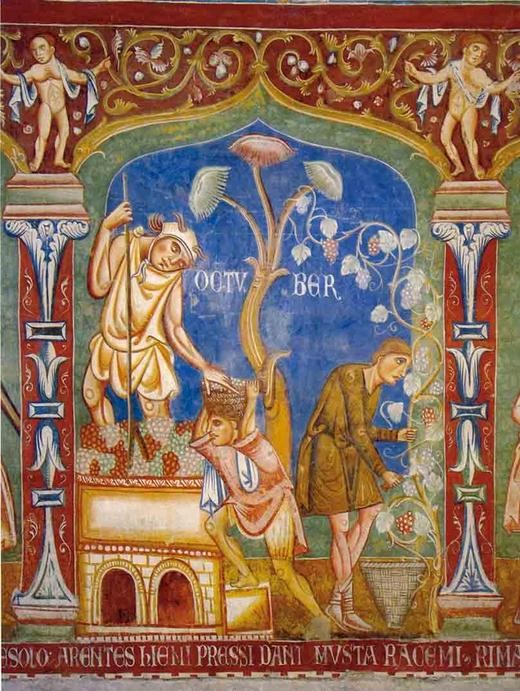 OCTV BER
ESOLO: ARENTES hIENI PRESSI DANT MVSTA RACEMI· RIMA